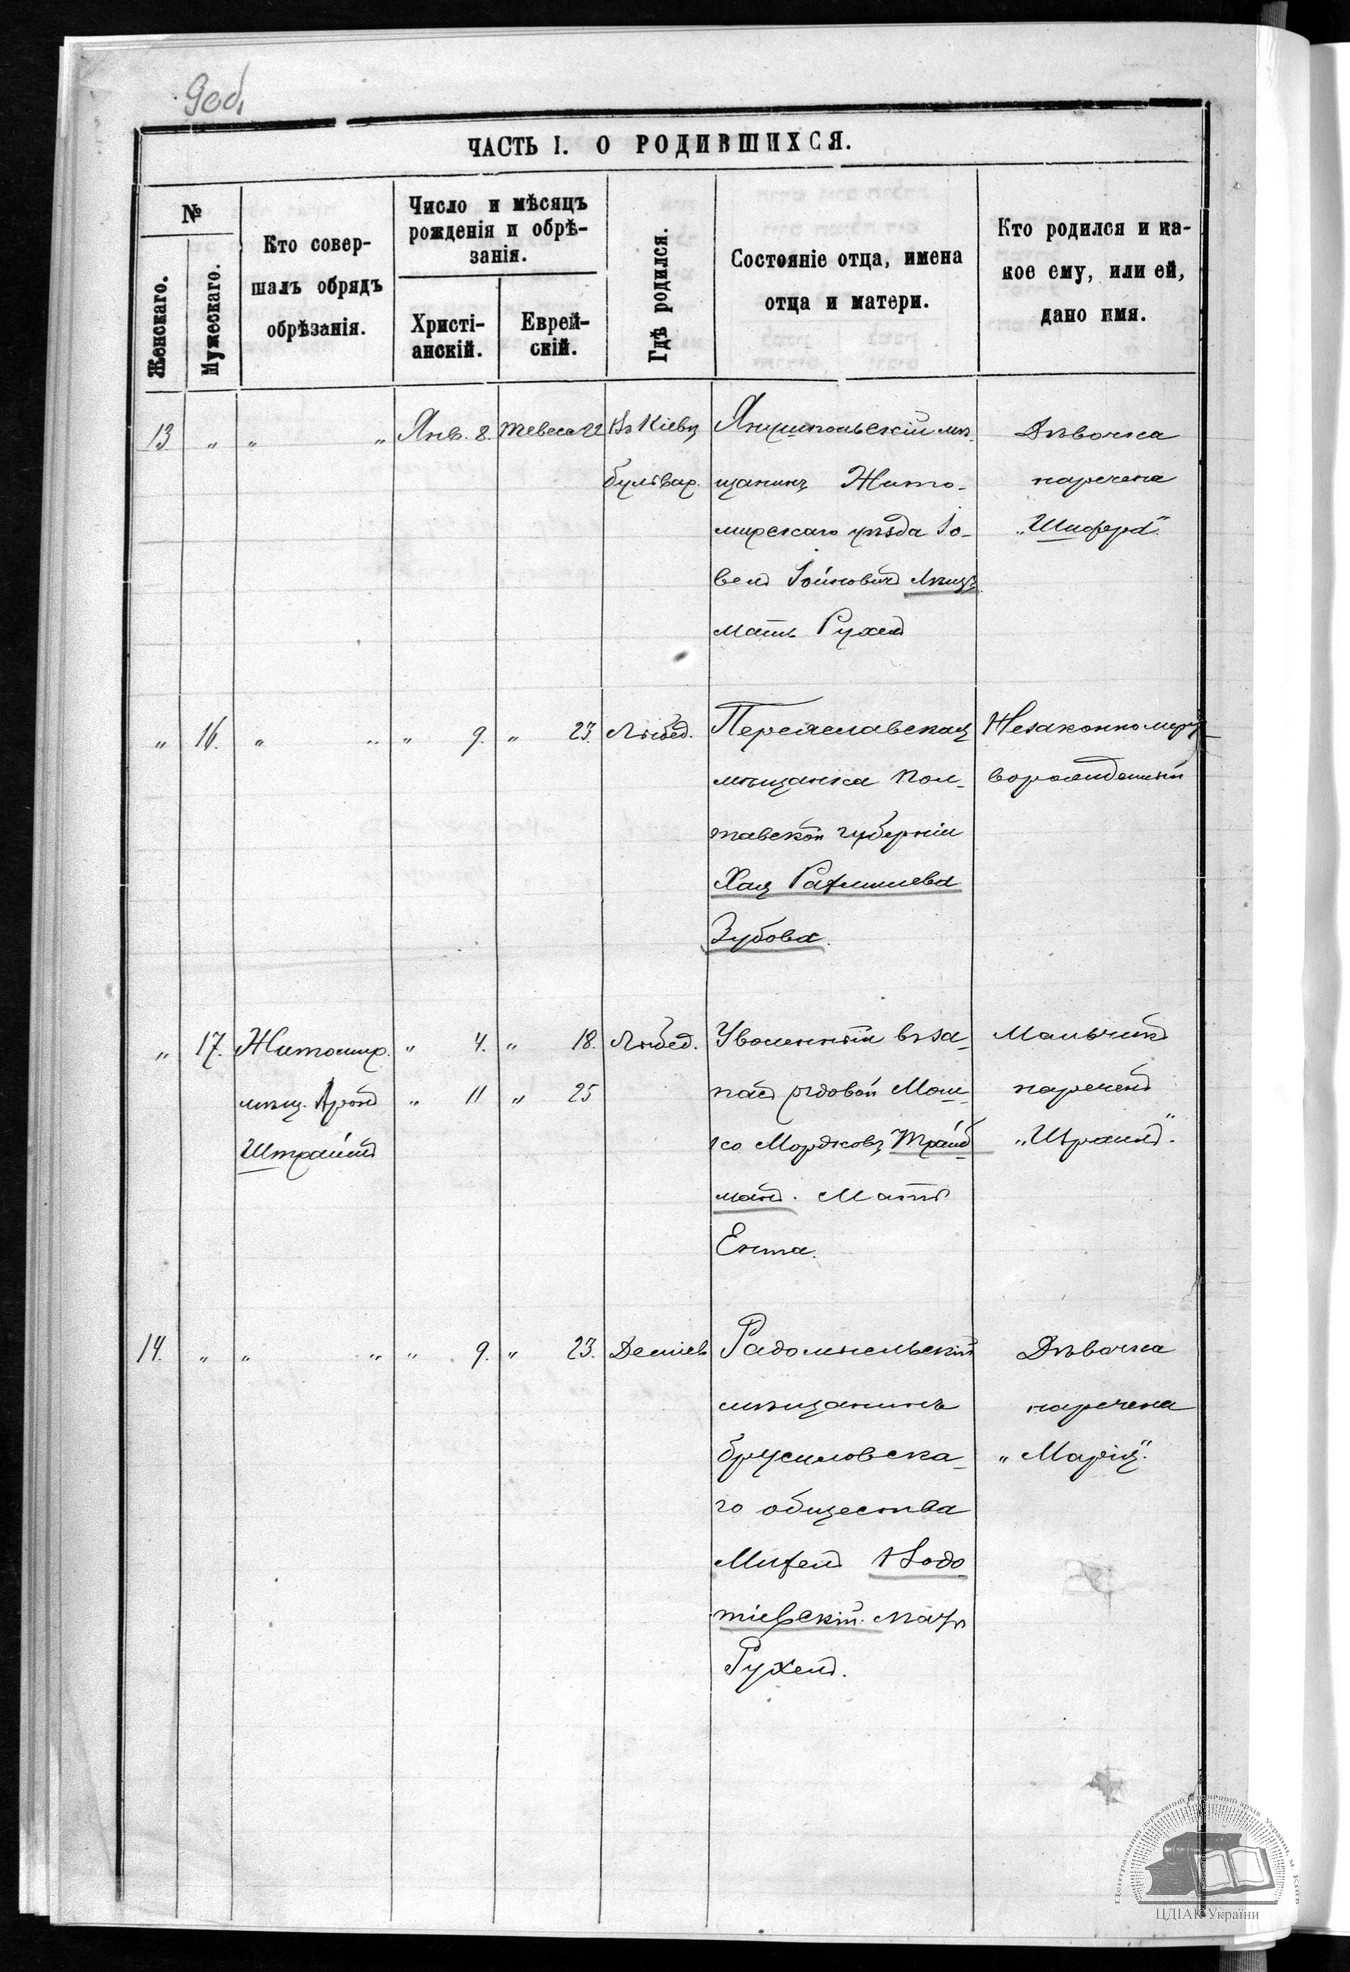 год
ЧАСТЬ I. О РОДИВШИХСЯ.
№
Женскаго.
Мужескаго.
Кто совер-
шалъ обрядъ
обрѣзанія.
Число и мѣсяцъ
рожденія и обрѣ-
занія.
Христі-
анскій.
Еврей-
скій.
Гдѣ родился.
Состояніе отца, имена
отца и матери.
Кто родился и ка-
кое ему, или ей,
дано имя.
13 „ „ „ Янв. 8. Тевеса 22 Въ Кіевѣ
бульвар.
Янушпольскій мѣ-
щанинъ Жито-
мирскаго уѣзда Іо-
вель Іойновичъ
мать Рухель
Дѣвочка
наречена
„Шифра“.
„ 16. „ „ „ 9. „ 23. Лыбед.
Переяславская
мѣщанка Пол-
тавской губерніи
Хая
Зубова.
Незаконно мерт
ворожденный
„ 17. Житомир.
мѣщ. Аронъ
„ 4. „ 18. Лыбед.
„ 11 „ 25
Уволенный въ за-
пасъ рядовой Мош-
ко Мордковъ Трайб
манъ. Мать
Ента.
Мальчикъ
нареченъ
„Израиль“.
14. „ „ „ „ 9. „ 23. Деміев
Радомысльскій
мѣщанинъ
брусиловска-
го общества
Михель
мать
Рухель.
Дѣвочка
наречена
„Марія“.
ЦДІАК України